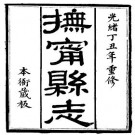 光緒丁丑年重修
撫寧縣志
本衙藏板